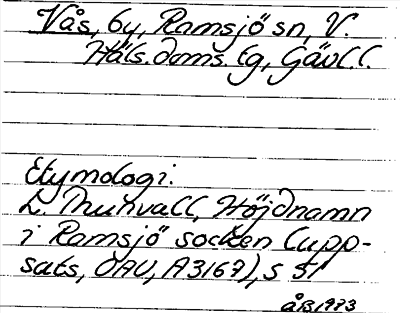 Vås, by, Ramsjö sn, V.
Häls. doms. Lg, Gävl.l.
Etymologi:
L. Munvall, Höjdnamn
i Ramsjö socken (upp-
sats, DAU, A3167), s 51
ÅB 1973